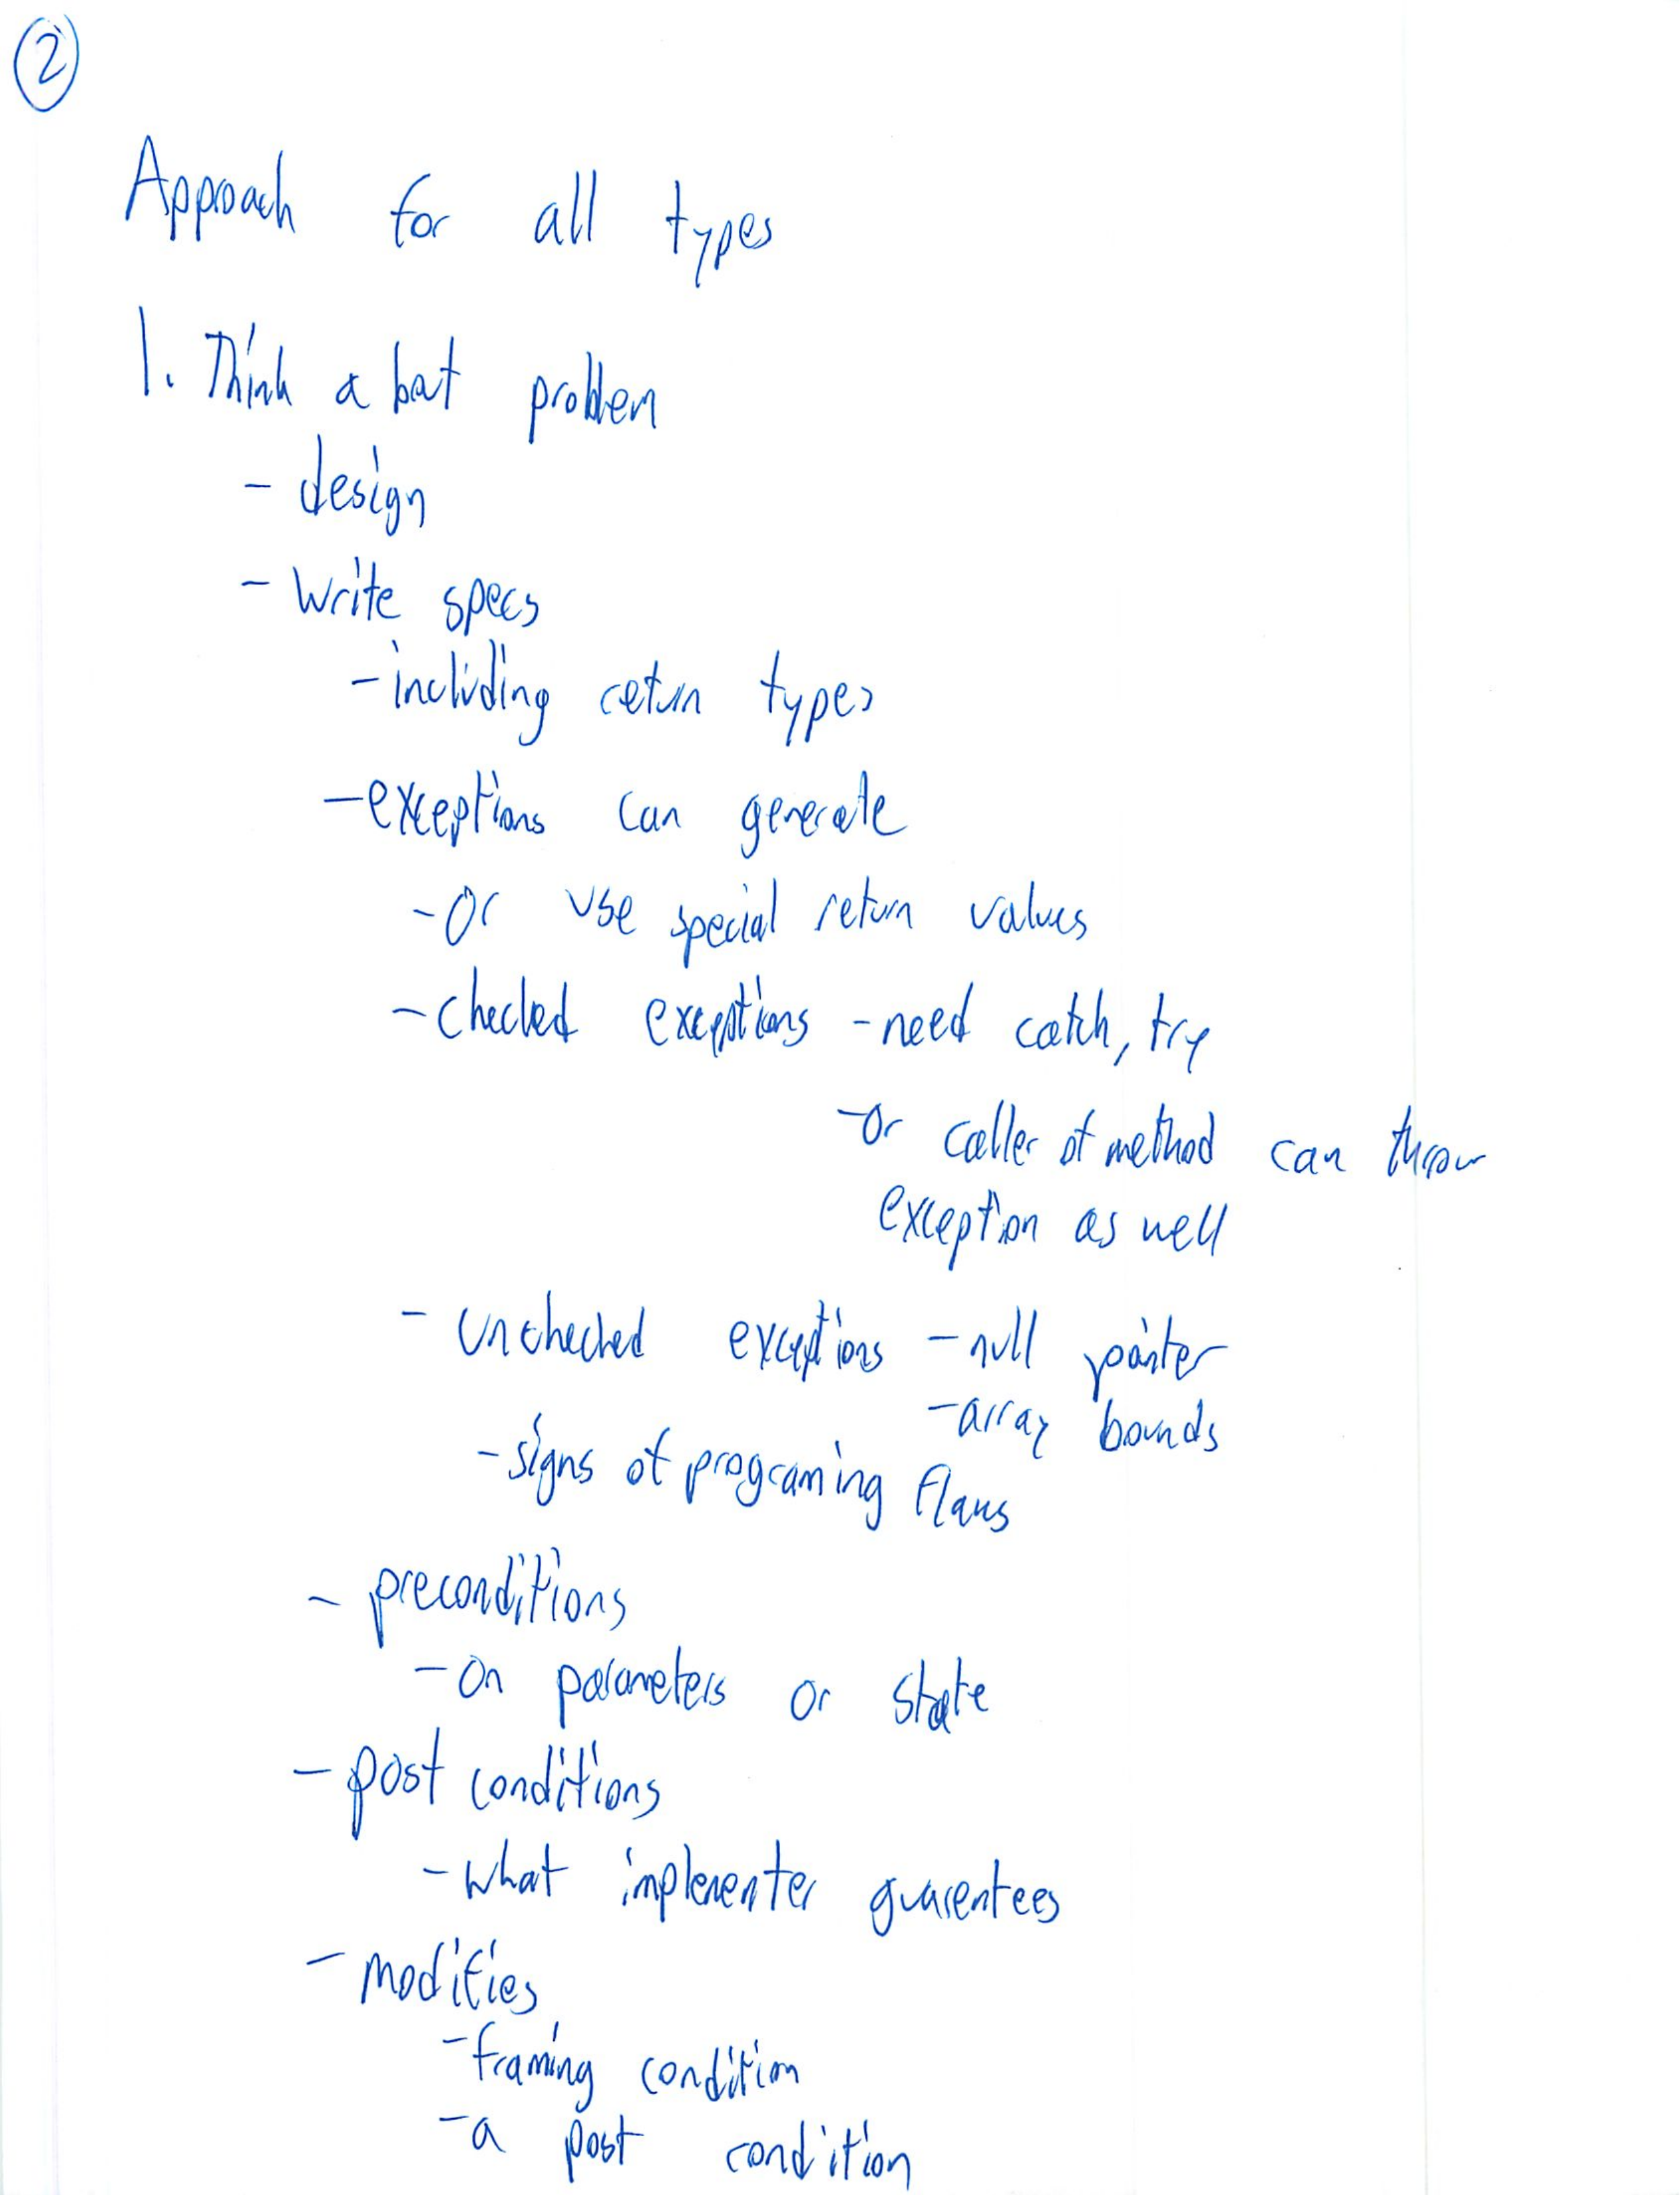 2
Approach for all types
1. Think about problem
- design
- write specs
- including return types
- exceptions can generate
- or use special return values
- checked exceptions - need catch, try
- or caller of method can throw
exception as well
- unchecked exceptions - null pointer
- array bounds
- signs of programing flaws
- preconditions
- on parameters or state
- post conditions
- what implementer guarentees
- modifies
- framing condition
- a post condition